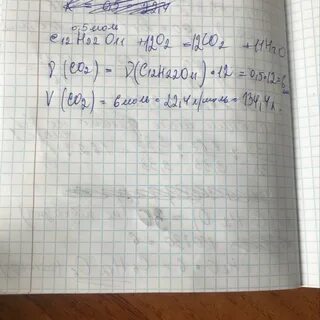 0,5 моль
C12H22O11 + 12O2 = 12CO2 + 11H2O
ν (CO2) = ν(C12H22O11) · 12 = 0,5·12=6
V (CO2) = 6 моль = 22,4 л/моль = 134,4 л.